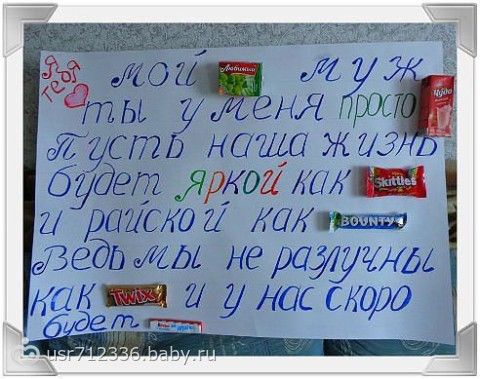 Я ♥ тебя
мой Любимый муж
ты у меня просто Чудо
Пусть наша жизнь
будет яркой как Skittles
и райской как BOUNTY
Ведь мы не разлучны
как TWIX и у нас скоро
будет
usr712336.baby.ru